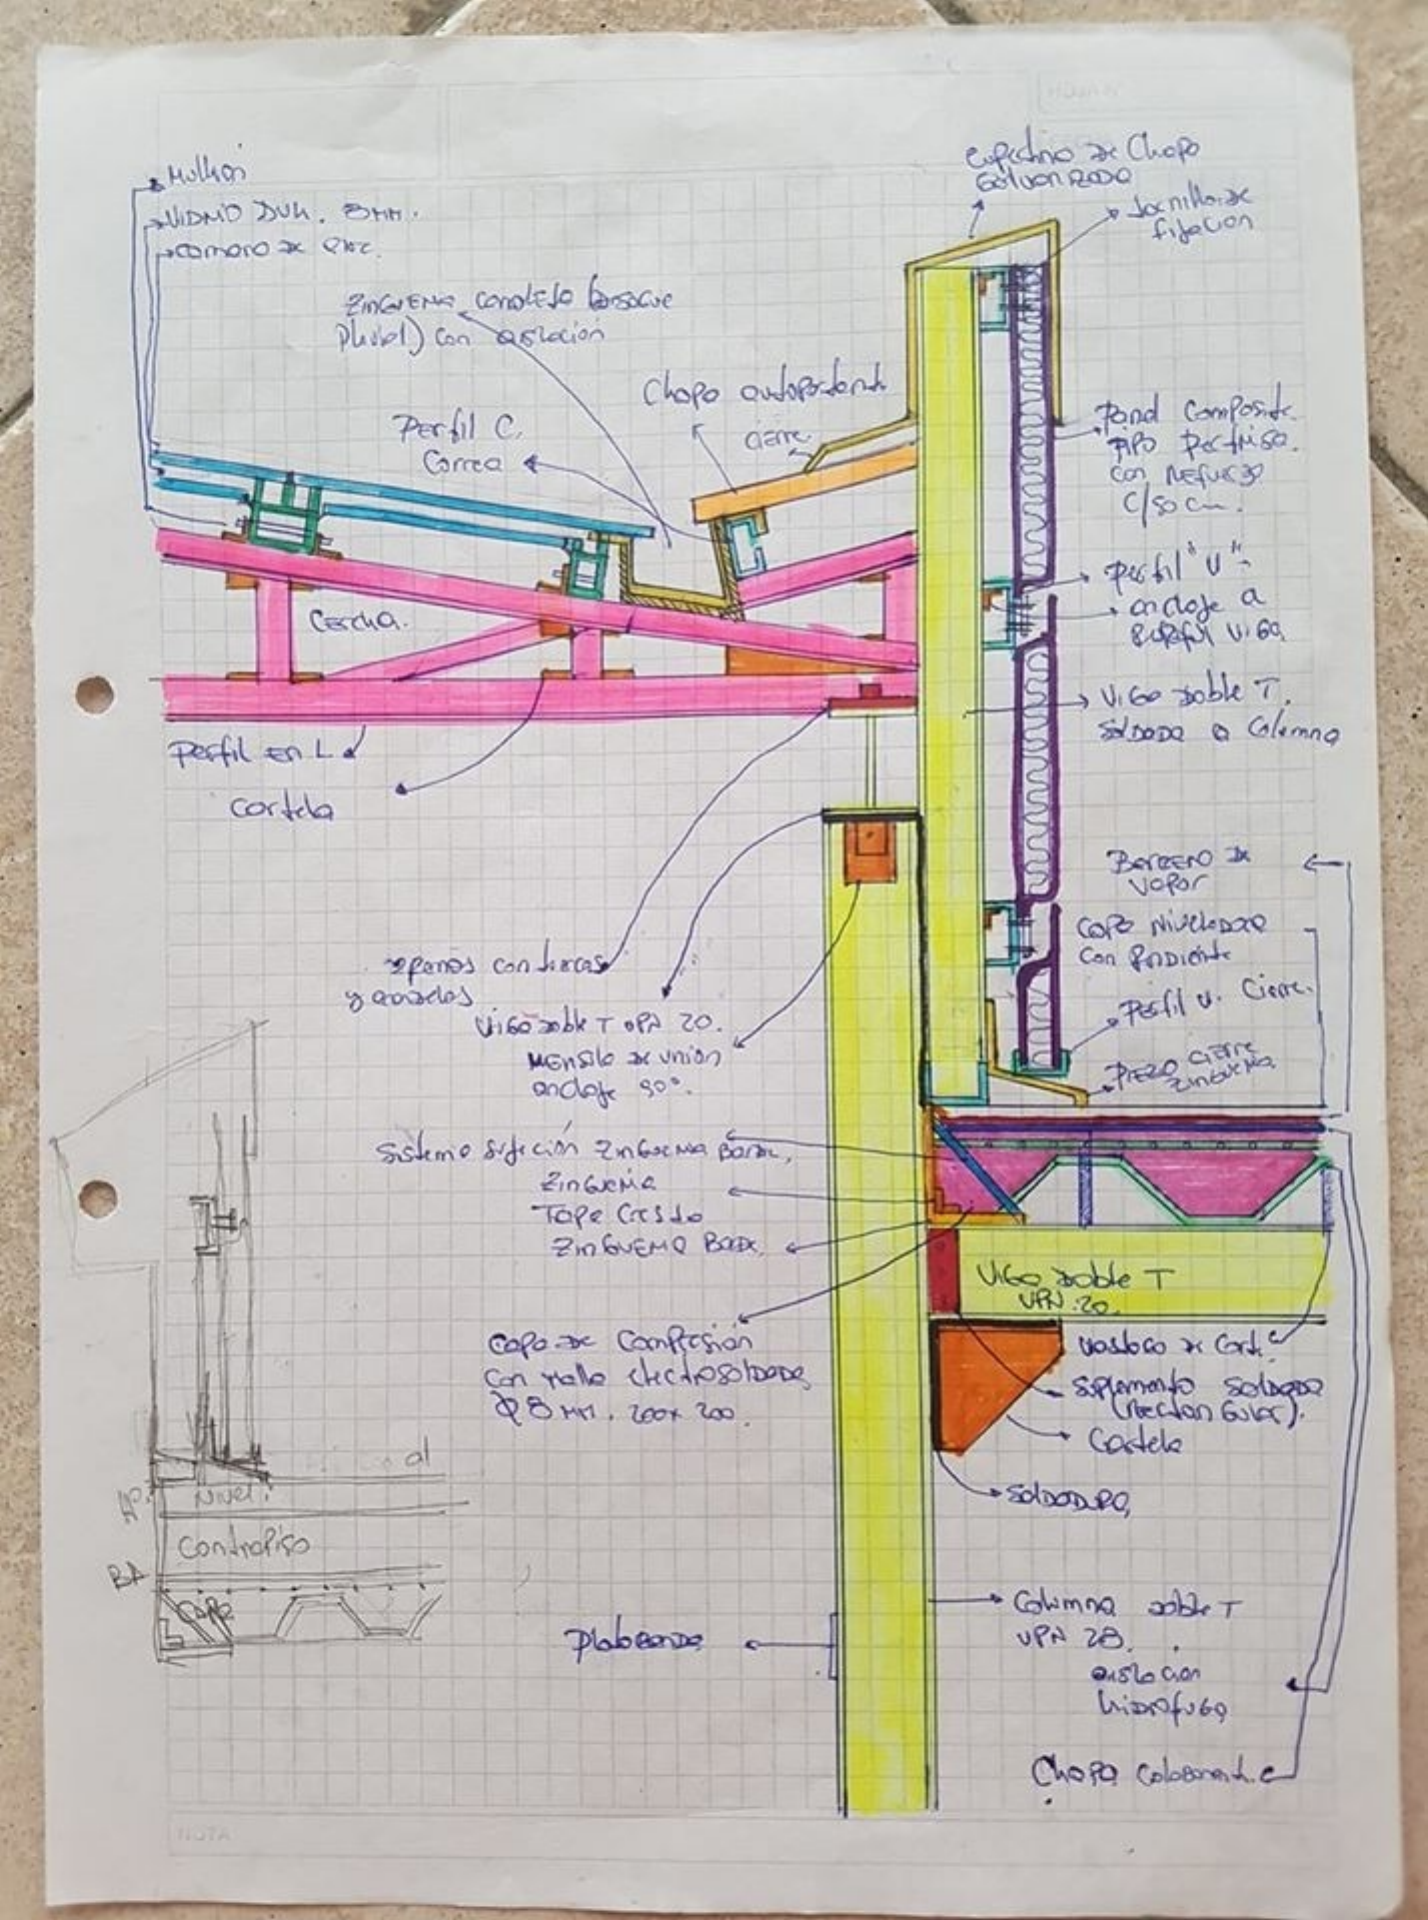 Mullion
VIDRIO DVH. 8MM.
camara de aire.
Zinguería canaleta (desague
pluvial) con aislacion
Perfil C.
Correa
Chapa autoportante
cierre.
cupertina de Chapa
Galvanizada
tornillo de
fijacion
Panel Composite
TIPO
con refuerzo
C/50 cm.
perfil "U"
anclaje a
viga
Cercha.
Viga doble T.
soldada a Columna
Perfil en L
cartela
Barrera de
Vapor
Capa Niveladora
con pendiente
Perfil U. Cierre.
Pieza cierre
zinguería.
con tuercas
y arandelas
Viga doble T UPN 20.
Mensula de union
anclaje 90°.
Sistema sujeción zinguería Borde,
Zinguería
Tapa Cresta
Zinguería Borde.
Viga doble T
UPN 20.
Capa de Compresion
con malla electrosoldada
Ø 8 MM. 200x200.
vastago de Corte
suplemento soldado
(rectangular).
Cartela
Soldadura
al
Nivel.
Contrapiso
BA
Capa
Planchuela
Columna doble T
UPN 28.
aislacion
hidrofuga
Chapa Colaborante